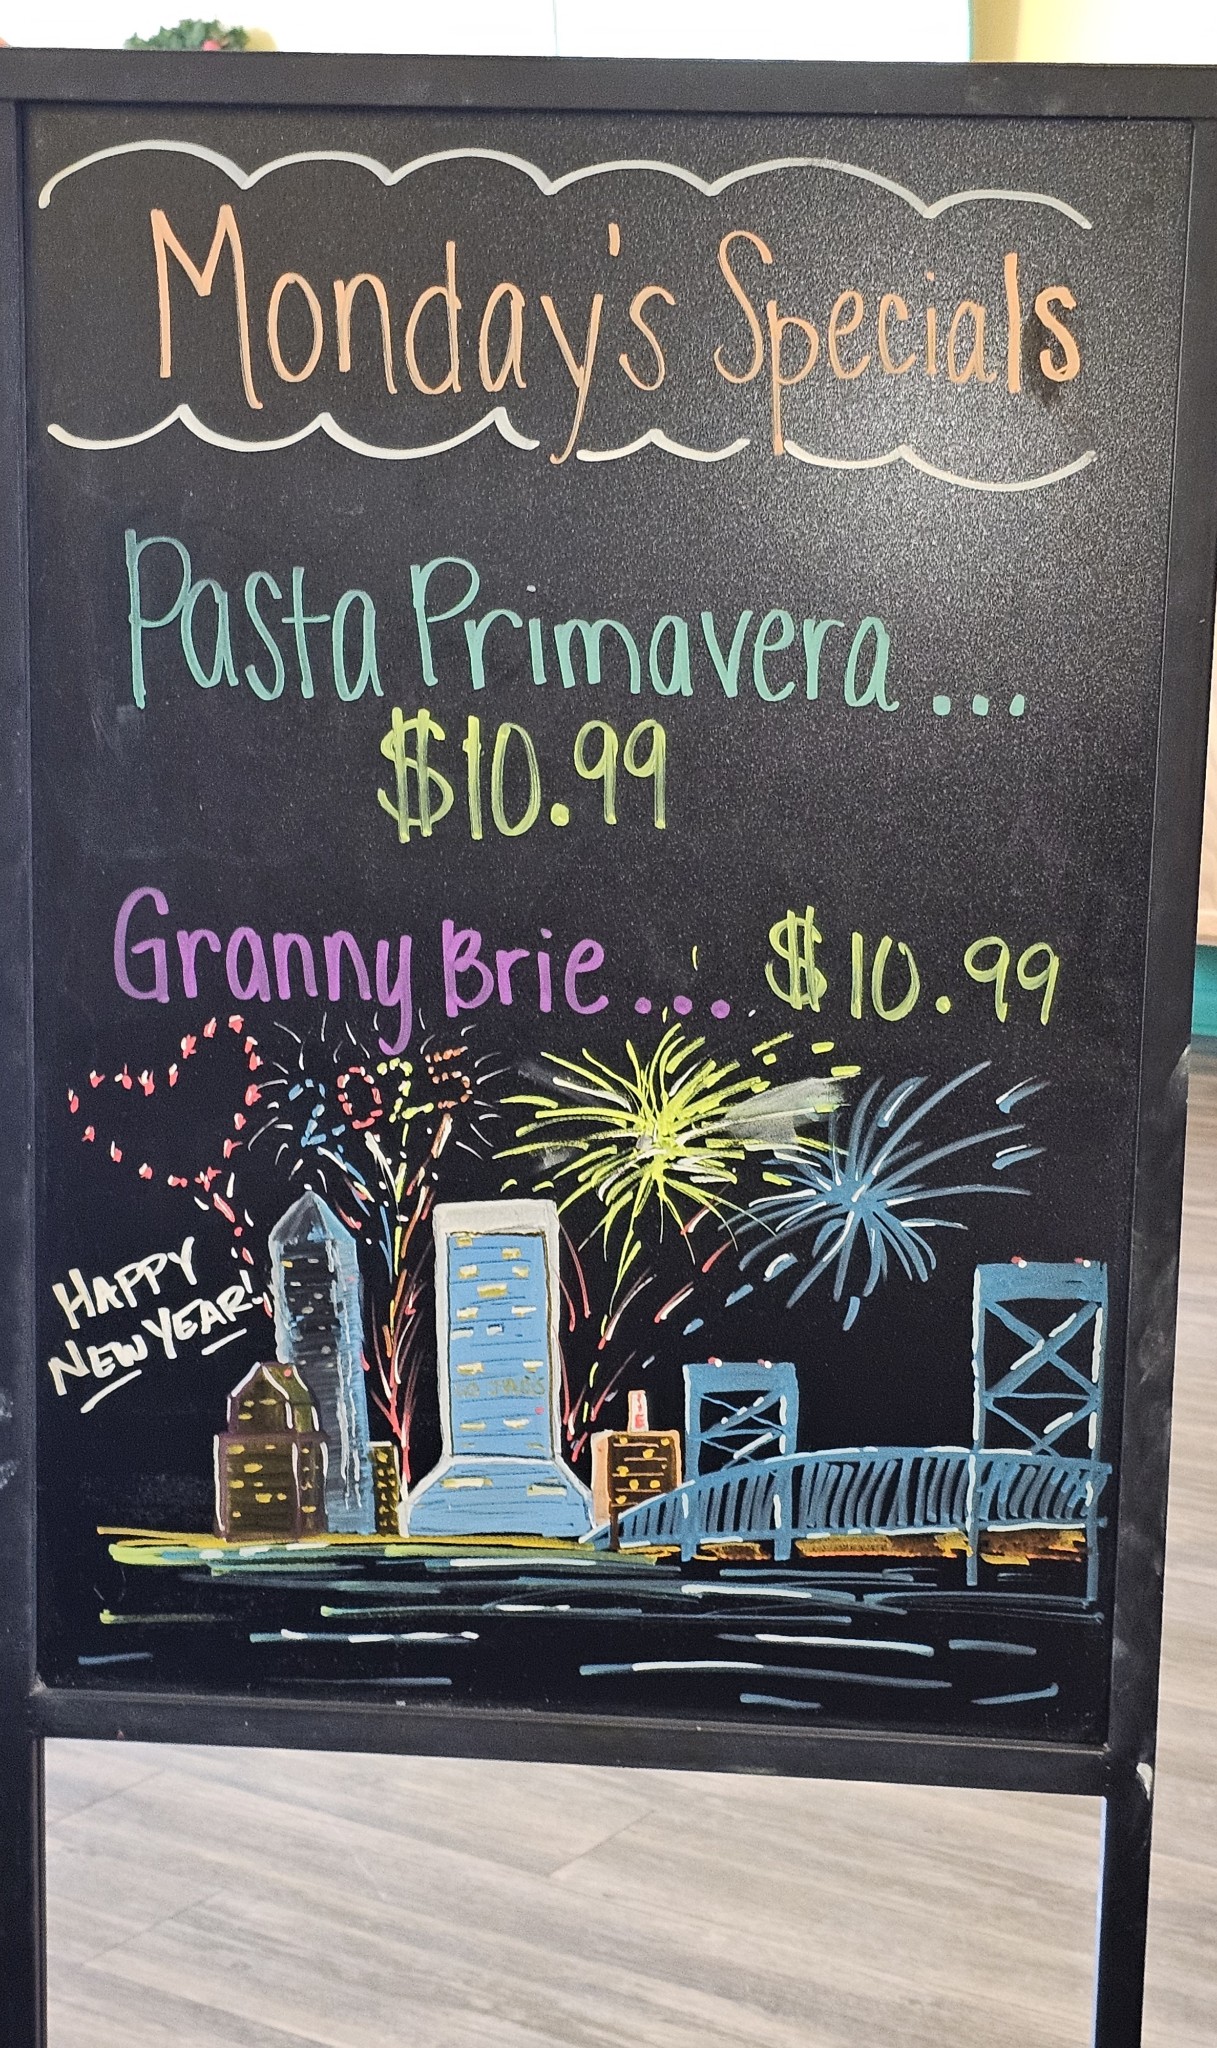 Monday's Specials
Pasta Primavera ...
$10.99
Granny Brie ... $10.99
2025
HAPPY
NEW YEAR!
GO JAGS